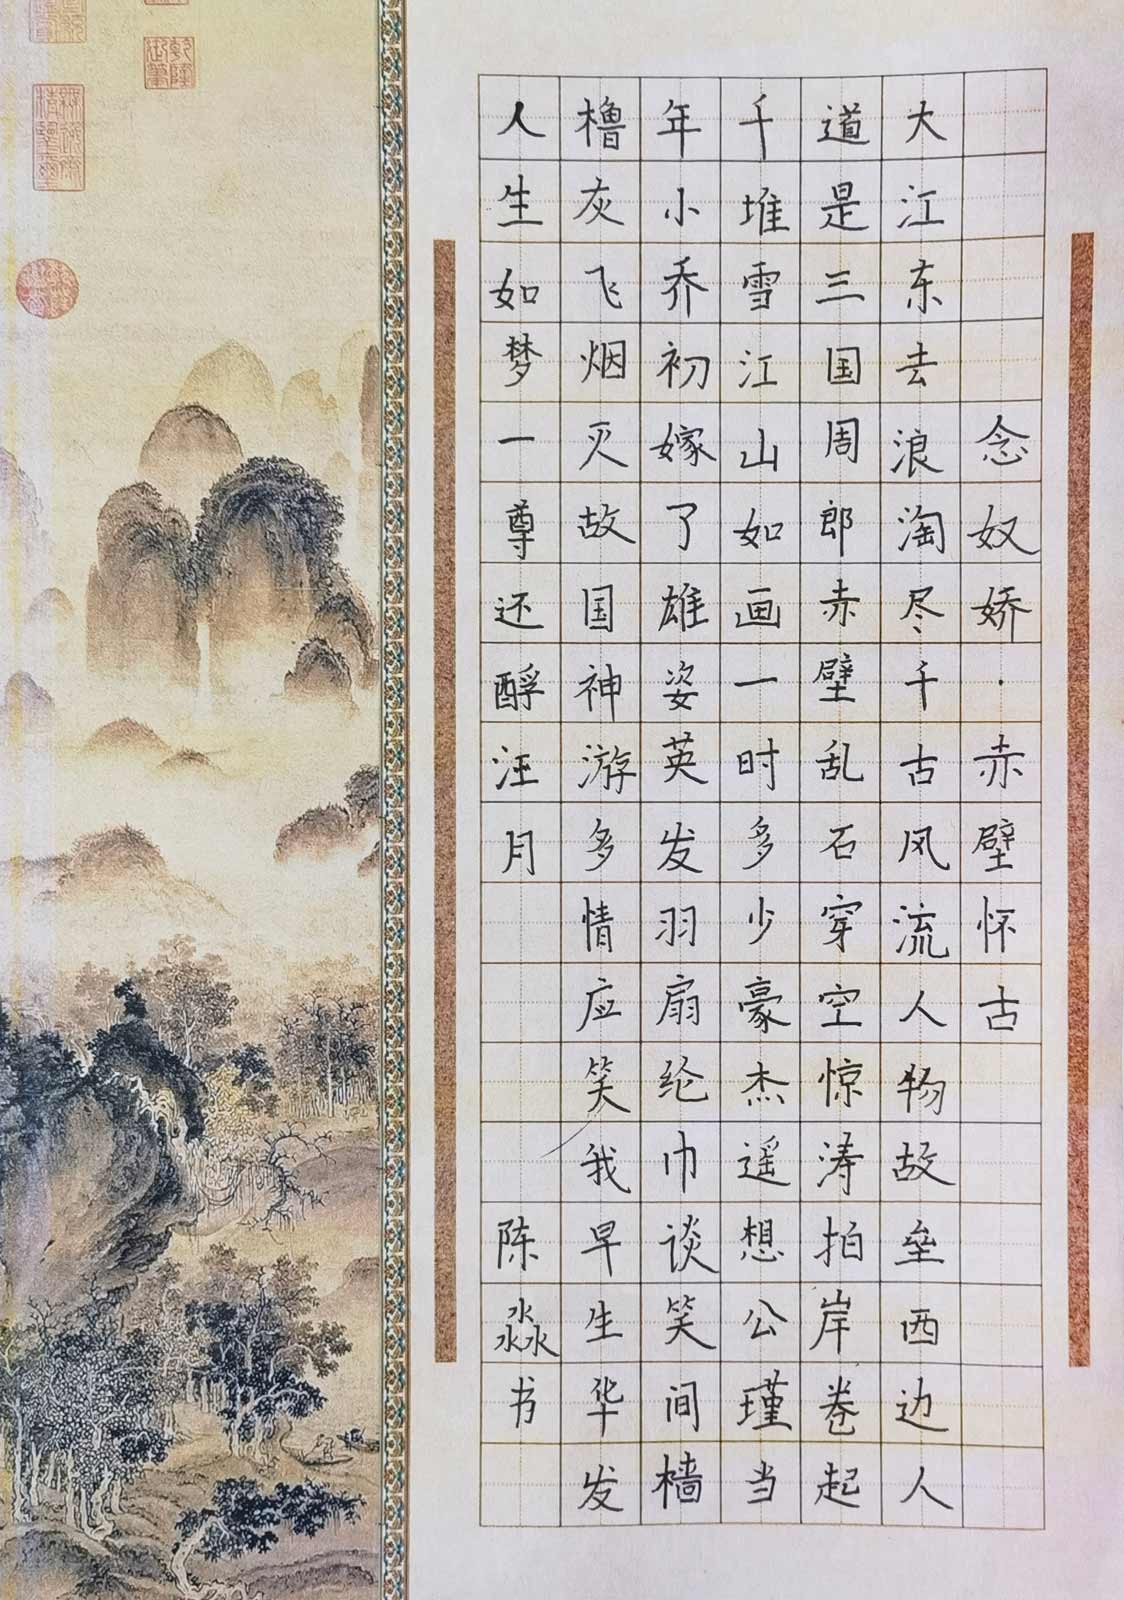 念奴娇·赤壁怀古
大江东去浪淘尽千古风流人物故垒西边人
道是三国周郎赤壁乱石穿空惊涛拍岸卷起
千堆雪江山如画一时多少豪杰遥想公瑾当
年小乔初嫁了雄姿英发羽扇纶巾谈笑间樯
橹灰飞烟灭故国神游多情应笑我早生华发
人生如梦一尊还酹江月
陈淼书